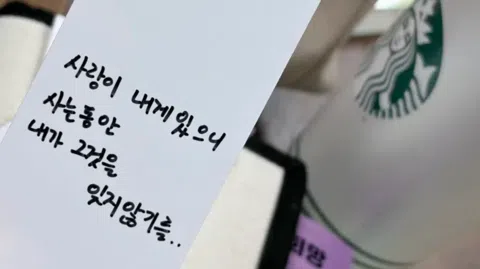 사랑이 내게 있으니
사는동안
내가 그것을
잊지않기를..
희망